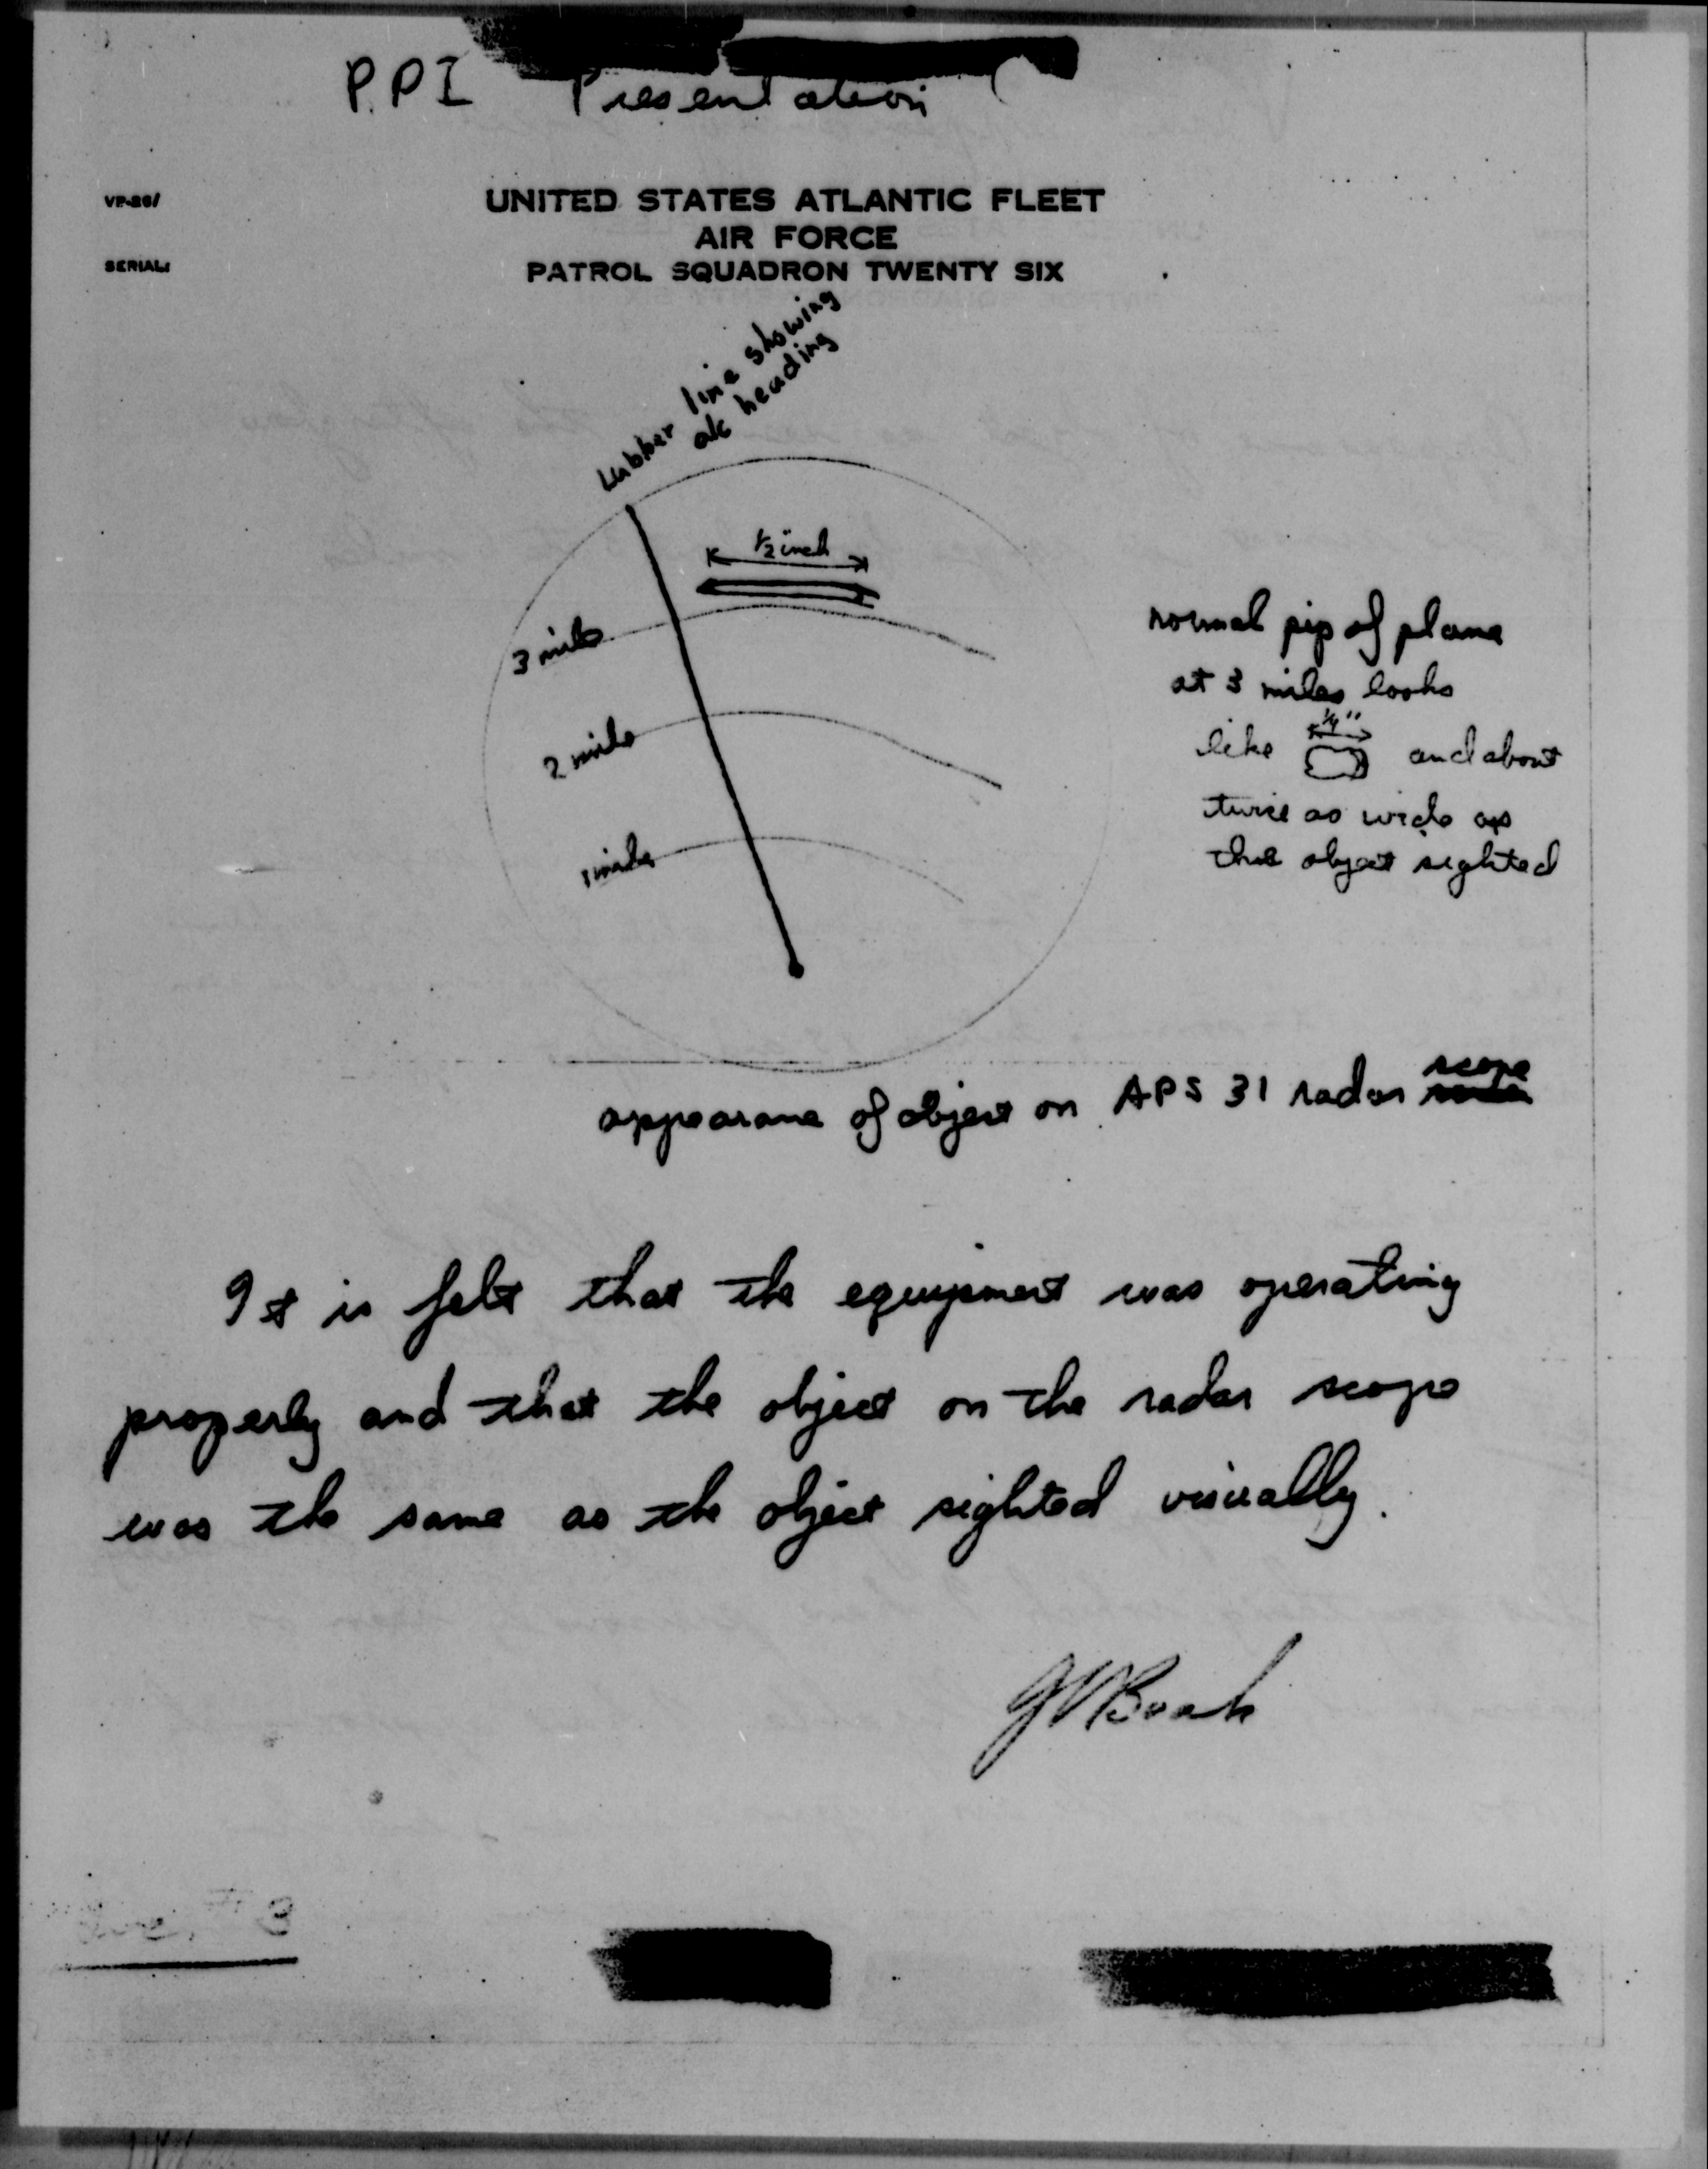 P.P.I Presentation
VP-26/
UNITED STATES ATLANTIC FLEET
AIR FORCE
SERIAL:
PATROL SQUADRON TWENTY SIX
Lubber line showing
a/c heading
1/2 inch
3 mile
2 mile
1 mile
normal pip of plane
at 3 miles looks
like 1/4" and about
twice as wide as
the object sighted
appearance of object on APS 31 radar scope
It is felt that the equipment was operating
properly and that the object on the radar scope
was the same as the object sighted visually.